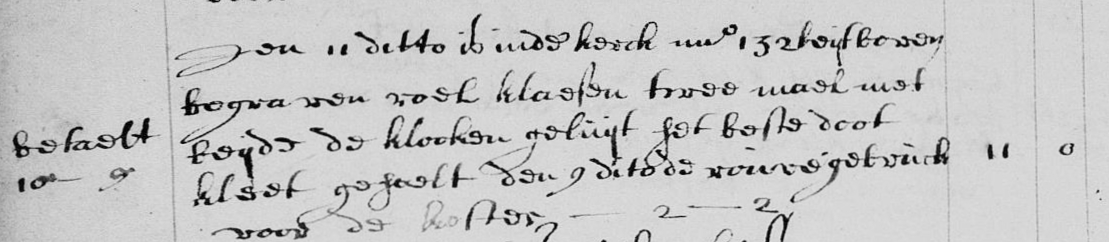 Den 11 ditto is inde kerck nu° 132 leyt boven
begraven roel klaesen twee mael met
betaelt beyde de klocken geluyt het beste doot
10 - 9 kleet gehaelt den 9 dito de rouwe gebruck 11 0
voor de koster — 2 — 2